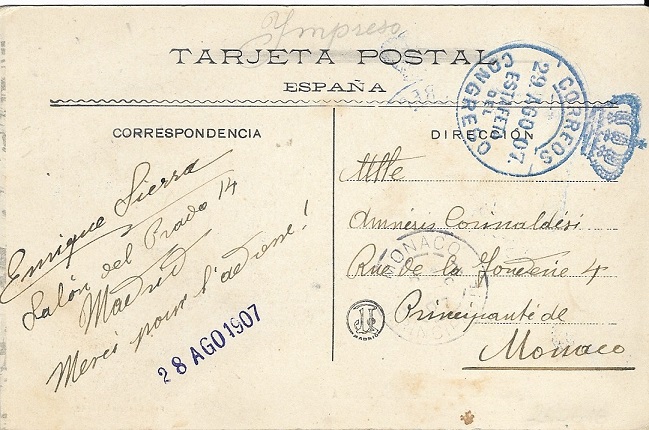 Impreso
TARJETA POSTAL
ESPAÑA
CORRESPONDENCIA
Enrique Sierra
Salón del Prado 14
Madrid
Merci pour l'adresse!
28 AGO 1907
DIRECCIÓN
CORREOS
29 AGO 07
ESTAFETA
DEL
CONGRESO
Mlle
Amnéris Corinaldesi
Rue de la 4
Principauté de
Monaco
MONACO
MADRID